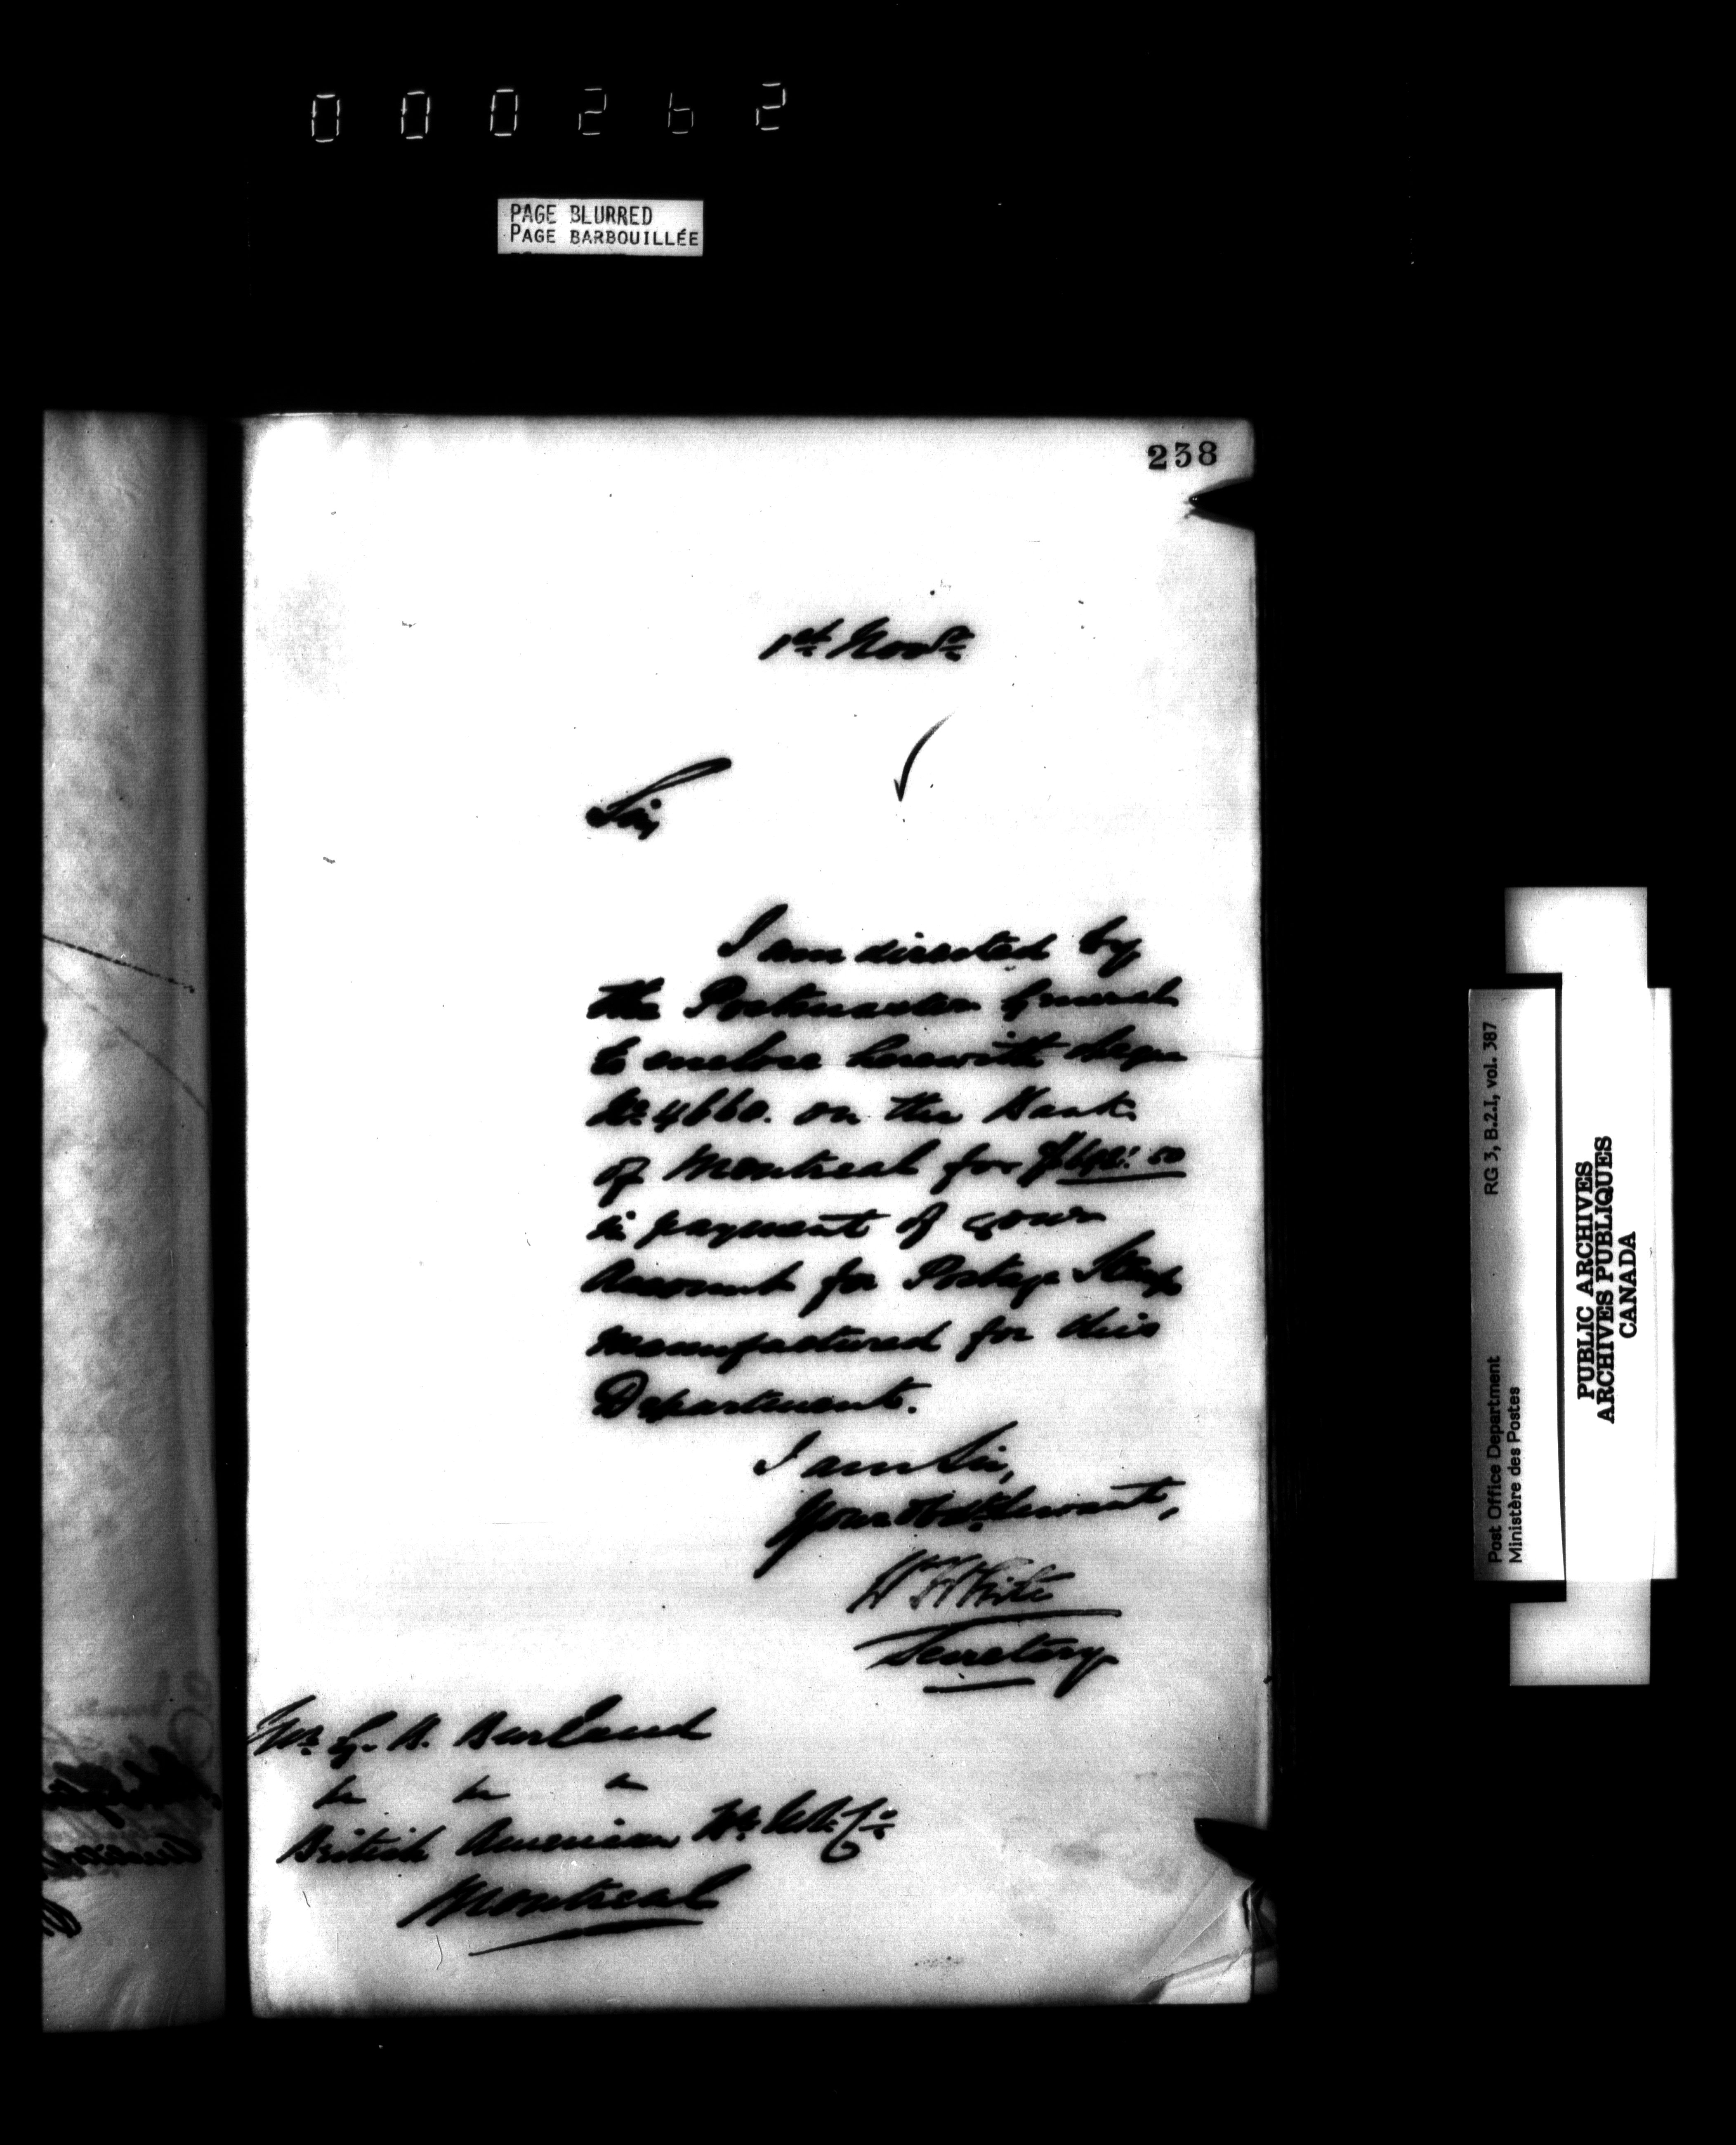 000262
PAGE BLURRED
PAGE BARBOUILLÉE
238
1st Novr
Sir,
I am directed by
the Postmaster General
to enclose herewith cheque
No. 4660. on the Bank
of Montreal for
in payment of your
Account for Postage Stamps
manufactured for this
Department.
I am Sir,
Your Obdt. Servant,
Wm White
Secretary
Mr. G. B. Burland
British American Co.
Montreal
RG 3, B.2.1, vol. 387
Post Office Department
Ministère des Postes
PUBLIC ARCHIVES
ARCHIVES PUBLIQUES
CANADA